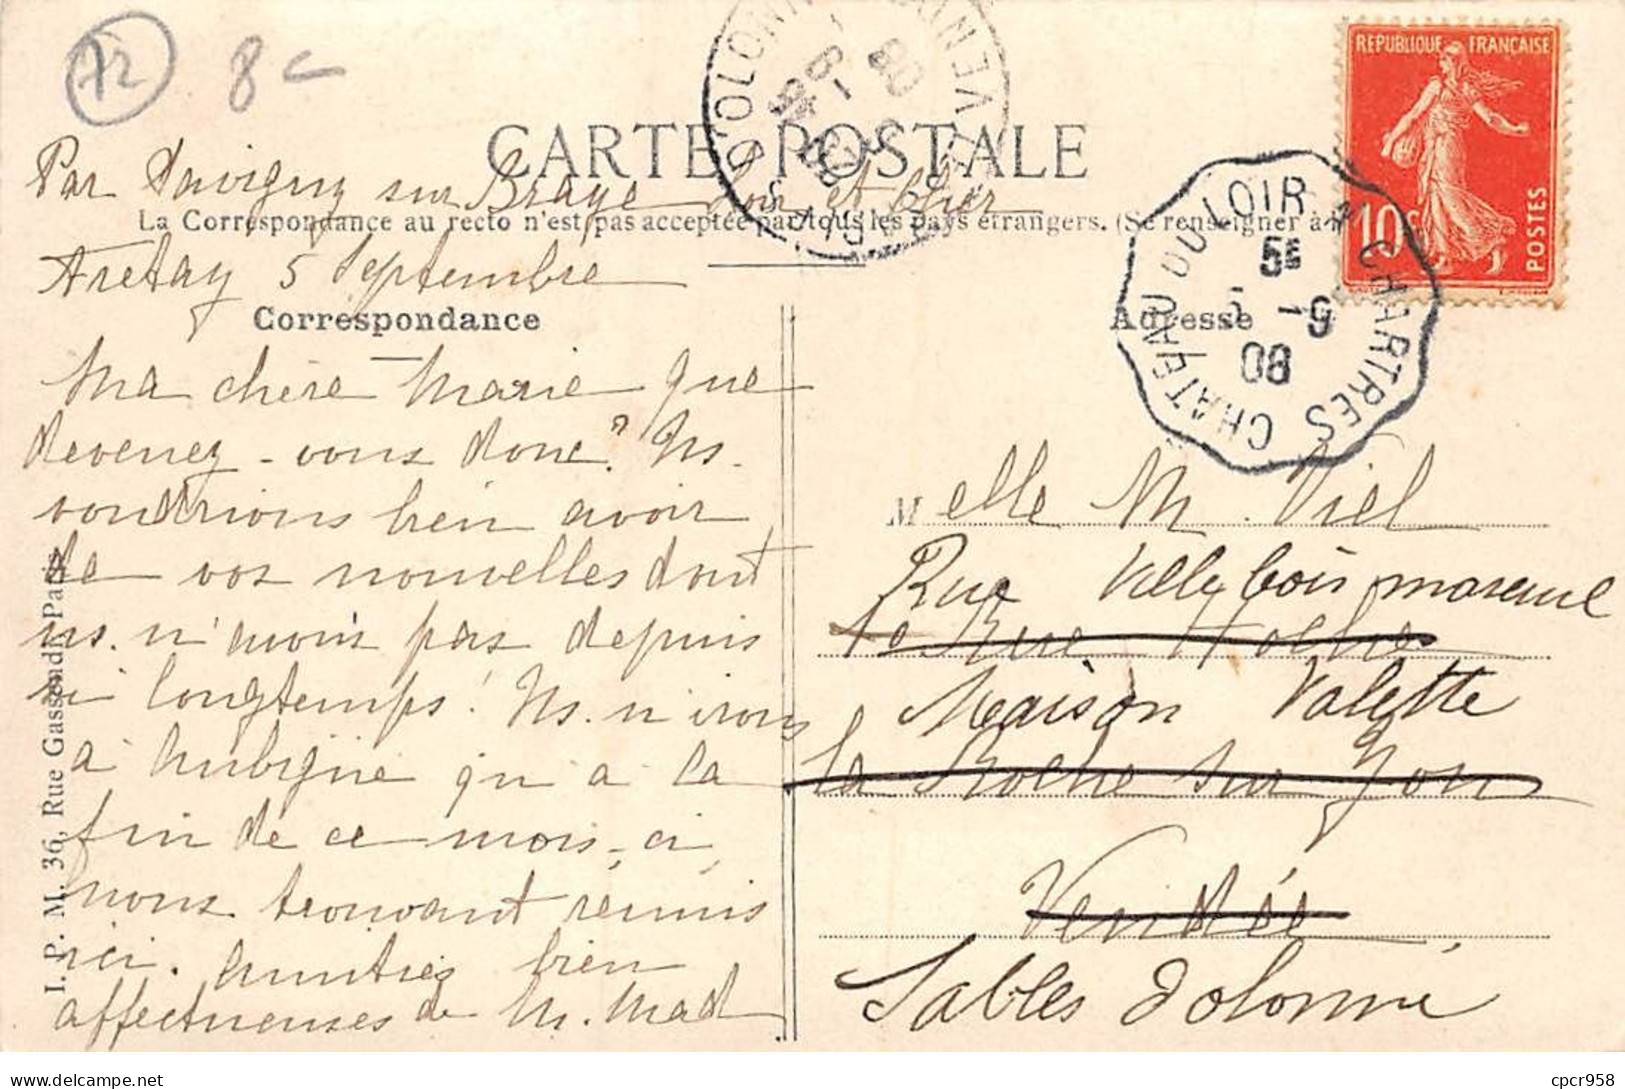 72 8c
RÉPUBLIQUE FRANÇAISE
10c
POSTES
D'OLONNE VENDÉE
08
CARTE POSTALE
Par Savigny sur Braye Loir et Cher
La Correspondance au recto n'est pas acceptée par tous les pays étrangers. (Se renseigner à la
CHATEAU DU LOIR A CHARTRES
5E
5 -9
08
5 Septembre
Correspondance
Adresse
Ma chère Marie que
devenez-vous donc? Ns.
voudrions bien avoir
de vos nouvelles dont
ns. n'avons pas depuis
si longtemps! Ns. n'irons
à Aubigné qu'à la
fin de ce mois-ci,
nous trouvant réunis
ici. Amitiés bien
affectueuses de M. Mad
I. P. M. 36, Rue Gassendi, Paris
Melle M. Viel
Rue Villebois mareuil
Rue Hoche
Maison Valette
la Roche sur Yon
Vendée
Sables d'olonne
cpcr958